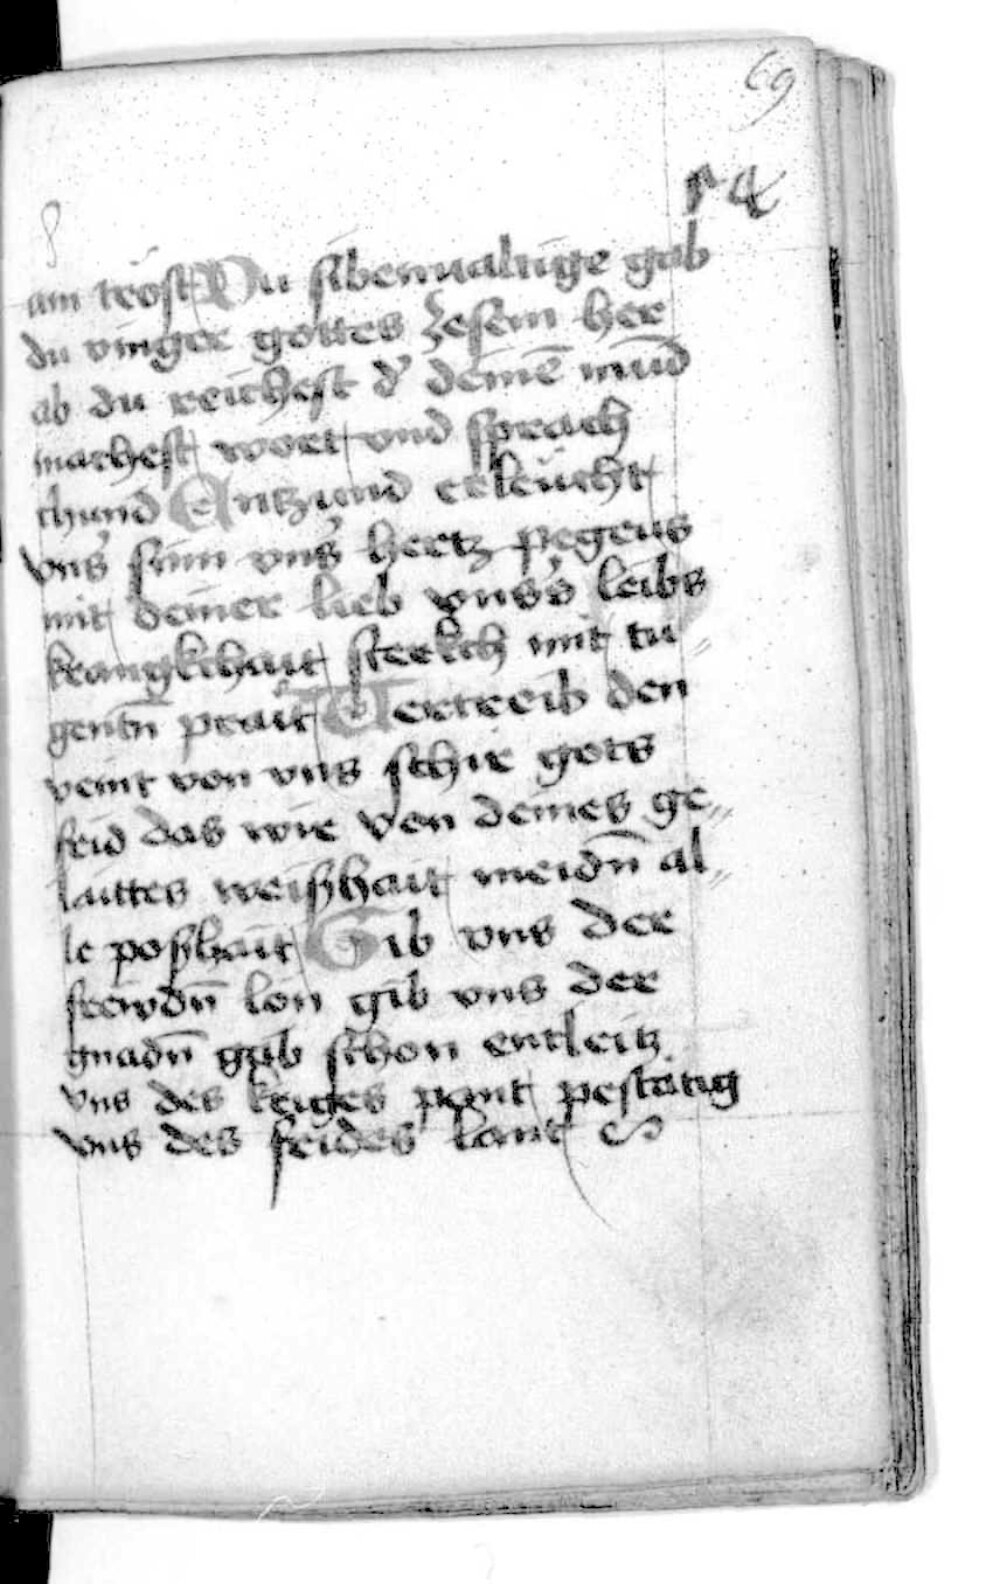 69
14
am trost Du sibenualtige gab
du vinger gottes zesem her
ab du reichest d' deinē mūd
machest wort vnd sprach
chund Entzund erleucht
vns' sinn vns' hertz pegeus
mit deiner lieb vnss's leibs
krangkchait sterkch mit tu„
gentn̄ prait Vertreib den
veint von vns schir gots
frid das wir von deines ge„
laittes weishait meidn̄ al„
le poshait Gib vns der
frewdn̄ lon gib vns der
gnadn̄ gab schon entleitz
vns des krigs pant pestatig
vns des frides lant